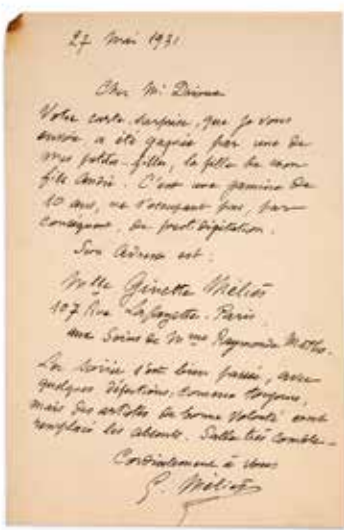 27 Mai 1931
Cher Mr
Votre carte surprise, que je vous
envoie a été gagnée par une de
mes petites-filles, la fille de mon
fils André. C'est une gamine de
10 ans, ne s'occupant pas, par
conséquent, de prestidigitation.
Son adresse est :
Mlle Ginette Méliès
107 Rue Lafayette. Paris
aux soins de Mme Raymonde
La soirée s'est bien passée, avec
quelques défections, comme toujours,
mais des artistes de bonne volonté ont
remplacé les absents. Salle très comble.
Cordialement à vous
G. Méliès